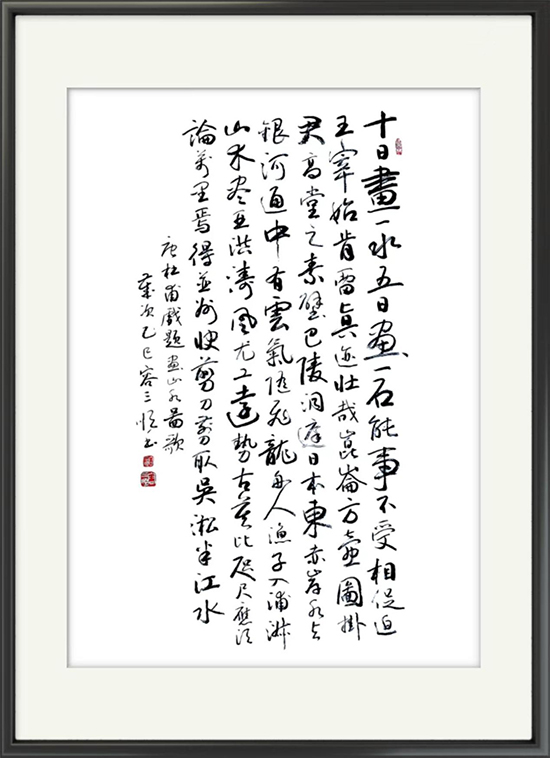 十日畫一水五日畫一石能事不受相促迫
王宰始肯留眞迹壯哉崑崙方壺圖掛
君高堂之素壁巴陵洞庭日本東赤岸水与
銀河通中有雲氣随飛龍舟人漁子入浦溆
山木尽亞洪濤風尤工遠勢古莫比咫尺應須
論萬里焉得並州快剪刀剪取吳淞半江水
唐杜甫戲題畫山水圖歌
歲次乙巳容三恒书